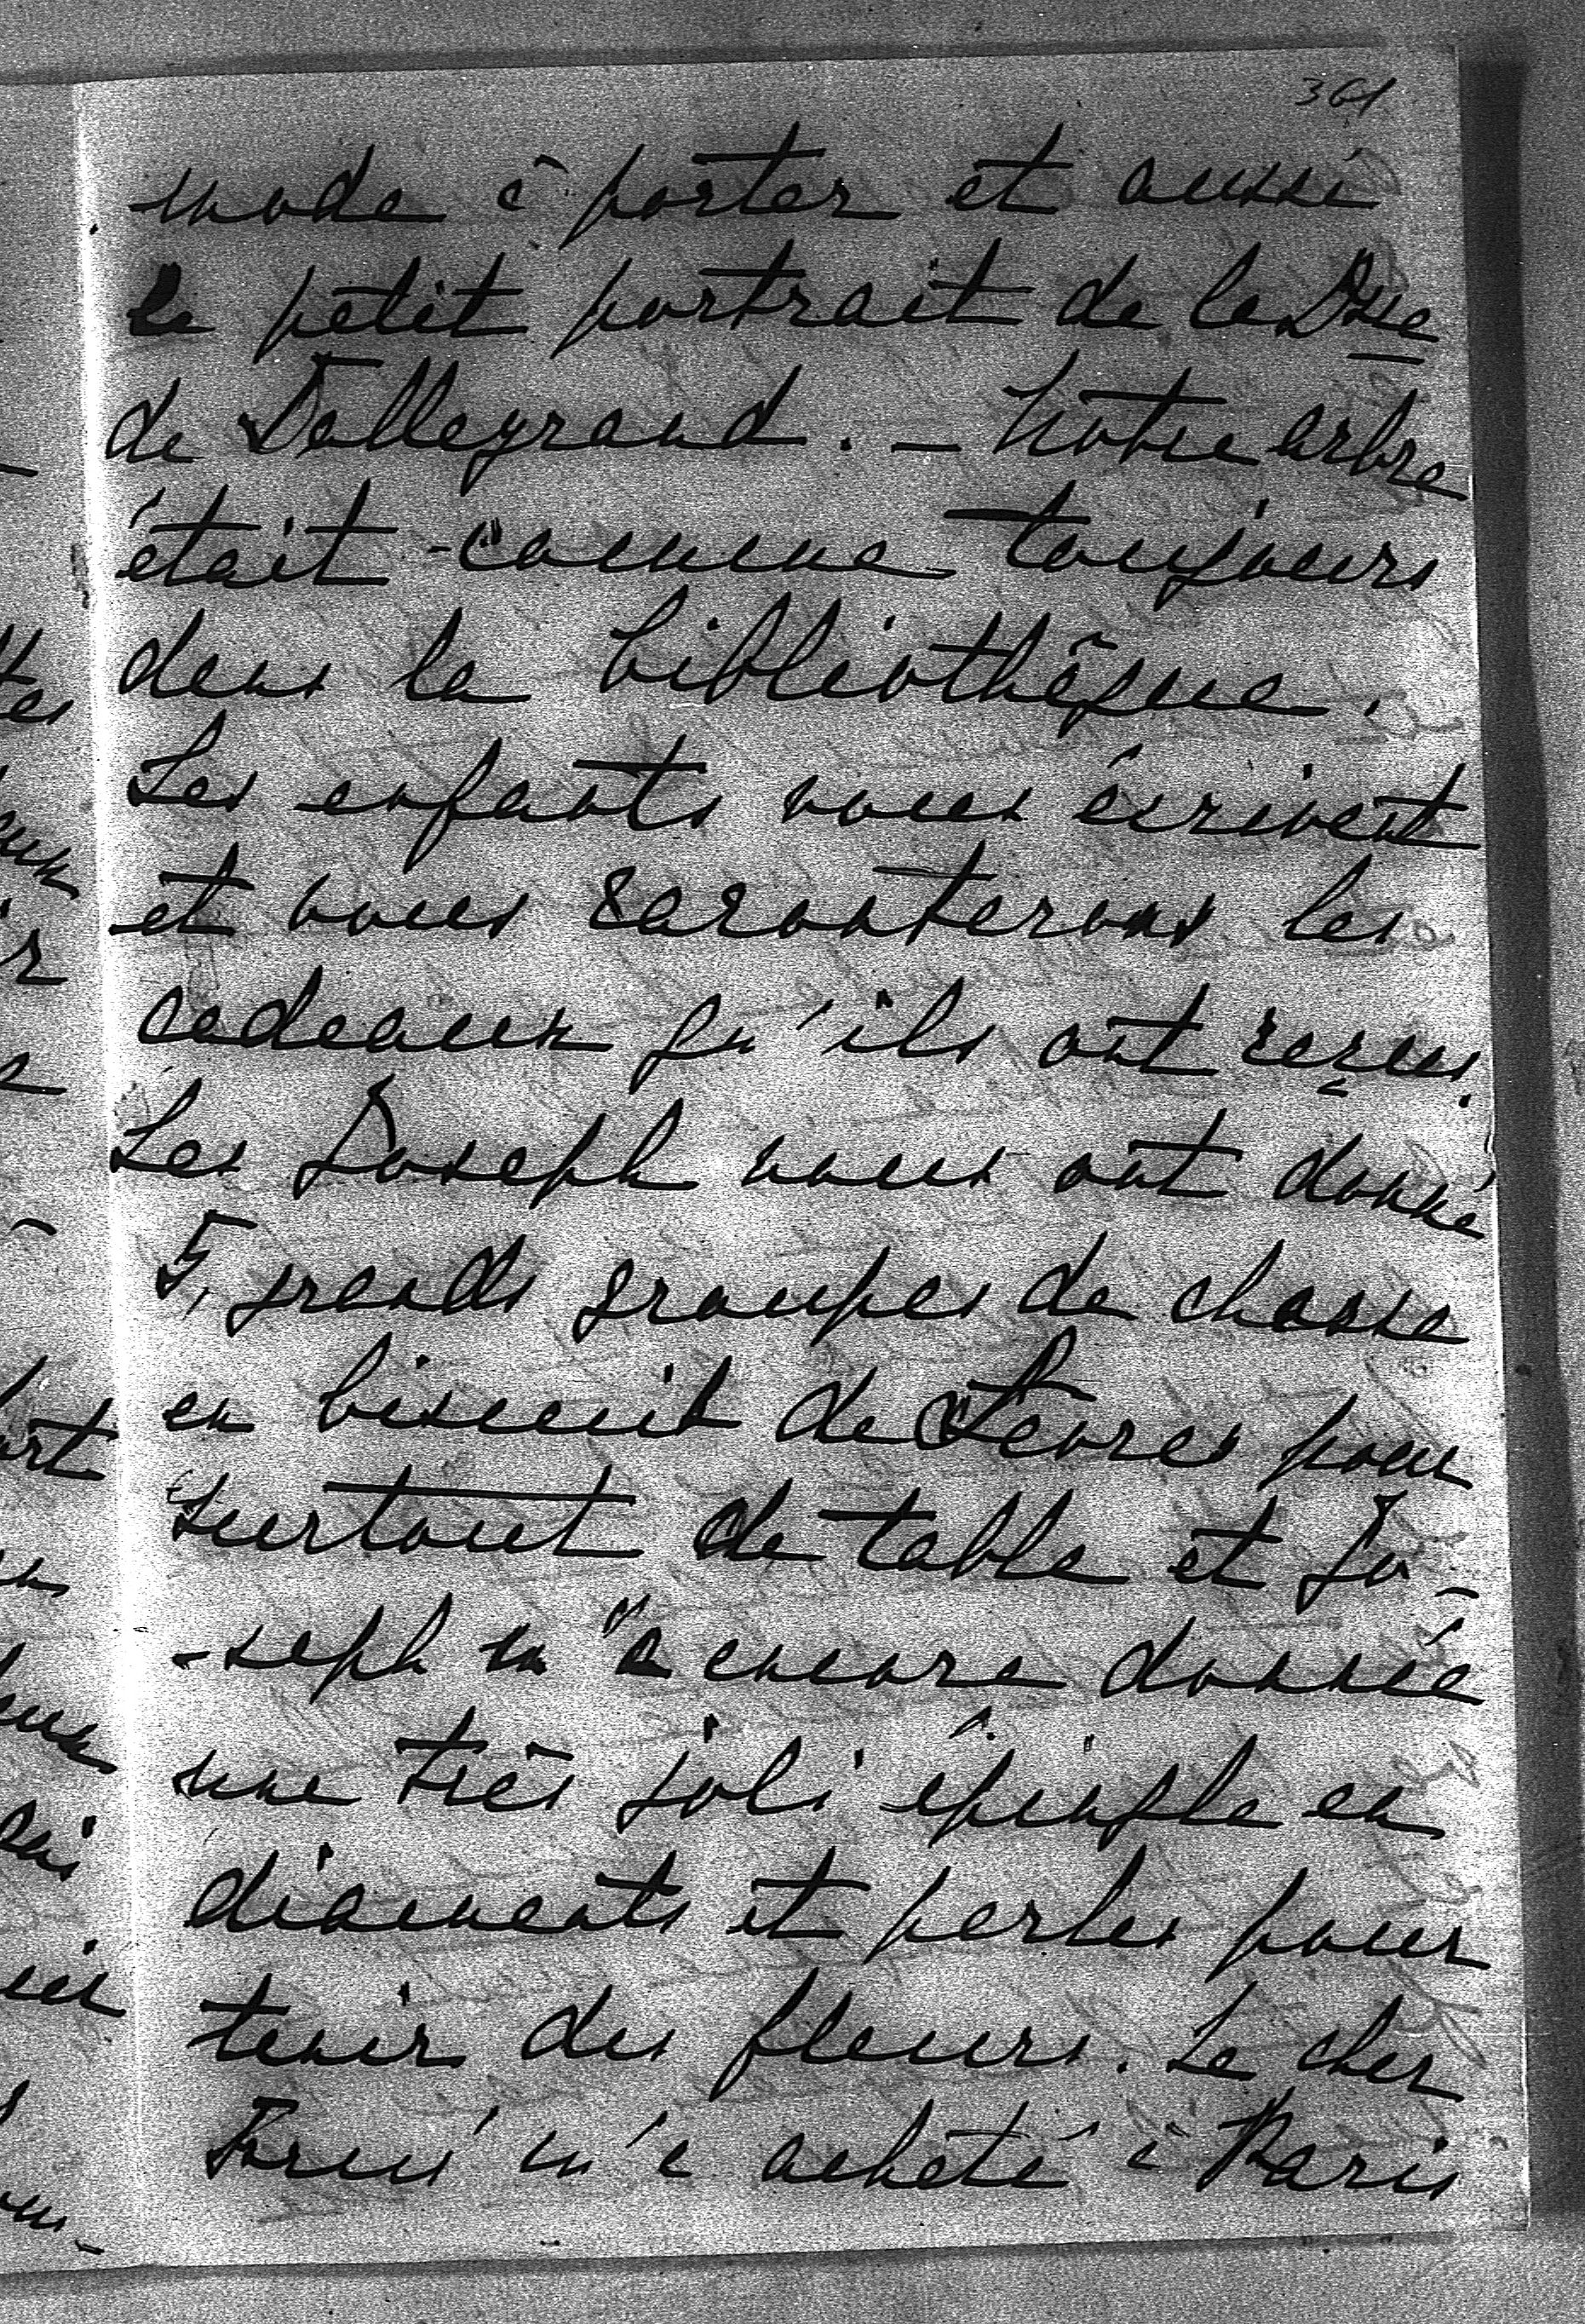 361
mode à porter et aussi
le petit portrait de la Dsse
de Tallegrand. — Notre arbre
était comme toujours
dans la bibliothèque.
Les enfants vous écrivent
et vous raconterons les
cadeaux qu'ils ont reçus.
Les Joseph nous ont donné
5, grands groupes de chasse
en biscuit de Sèvres pour
surtout de table et Jo-
-seph m'a encore donnée
une très joli épingle en
diamants et perles pour
tenir des fleurs. Le cher
m'a acheté à Paris